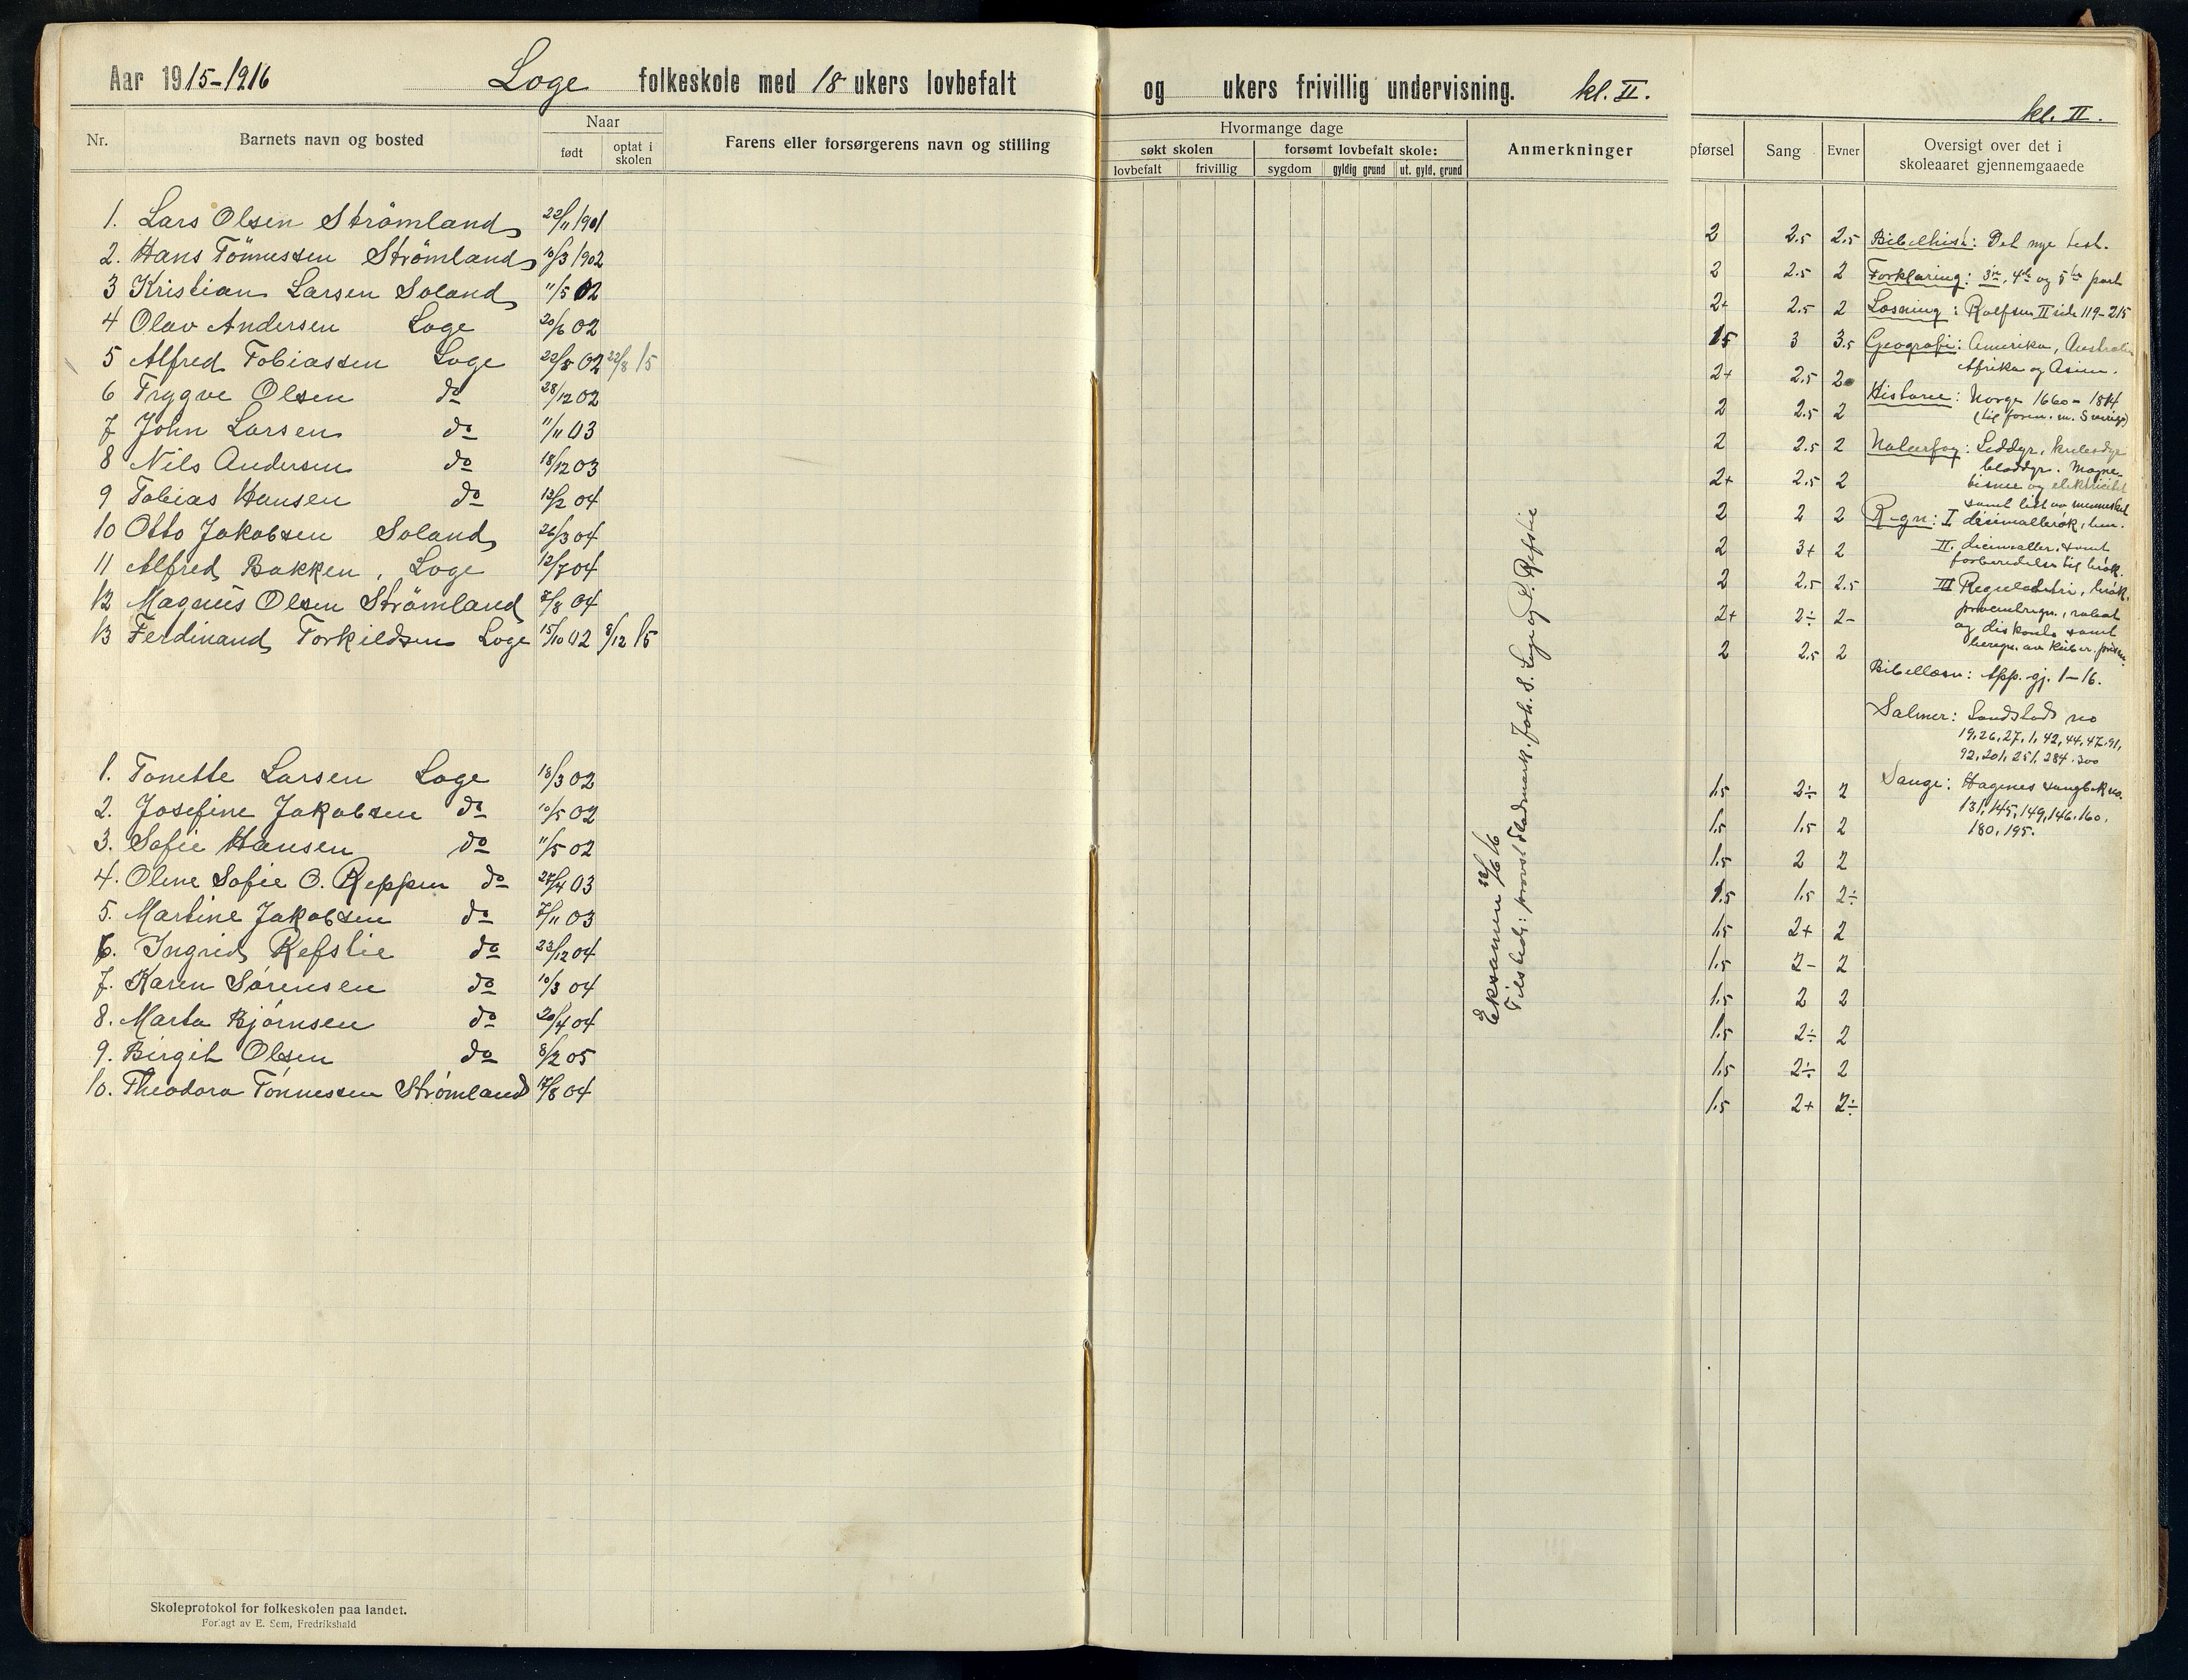 Aar 1915-1916 Loge folkeskole med 18 ukers lovbefalt
Nr. Barnets navn og bosted Naar født optat i skolen Farens eller forsørgerens navn og stilling
1. Lars Olsen Strömland 22/11 1901
2. Hans Tönnessen Strömland 10/3 1902
3 Kristian Larsen Soland 11/5 02
4 Olav Andersen Loge 20/6 02
5 Alfred Tobiassen Loge 22/8 02 22/8 15
6 Trygve Olsen do 28/12 02
7 John Larsen do 11/11 03
8 Nils Andersen do 18/12 03
9 Tobias Hansen do 13/2 04
10 Otto Jakobsen Soland 26/3 04
11 Alfred Bakken, Loge 12/7 04
12 Magnus Olsen Strömland 8/8 04
13 Ferdinand Torkildsen Loge 15/10 02 8/12 15
1. Tonette Larsen Loge 18/3 02
2. Josefine Jakobsen do 10/5 02
3. Sofie Hansen do 11/5 02
4. Oline Sofie O. Reppen do 24/4 03
5. Martine Jakobsen do 7/11 03
6. Ingrid Refstie do 23/12 04
7. Karen Sørensen do 10/3 04
8. Marta Bjørnsen do 20/4 04
9. Birgit Olsen do 8/2 05
10. Theodora Tönnessen Strömland 17/8 04
Skoleprotokol for folkeskolen paa landet.
Forlagt av E. Sem, Fredrikshald
og ukers frivillig undervisning. kl. II.
Hvormange dage
søkt skolen forsømt lovbefalt skole: Anmerkninger
lovbefalt frivillig sygdom gyldig grund ut. gyld. grund
Eksamen 12/6 16
Tilstede: provst Flodmark. Joh. S. Loge og P. Refstie
kl. II.
pførsel Sang Evner Oversigt over det i
skoleaaret gjennemgaaede
2 2.5 2.5 Bibelhist: Det nye test.
2 2.5 2 Forklaring: 3die, 4de og 5te part
2+ 2.5 2 Læsning: Rolfsen II side 119-215
1.5 3 3.5 Geografi: Amerika, Australien
Afrika og Asien.
2+ 2.5 2
Historie: Norge 1660-1814
2 2.5 2 (til foren. m. Sverige)
2 2.5 2 Naturfag: Leddyr,
bløddyr. Magne-
2+ 2.5 2 tisme og elektricitet
samt litt av mennesket
2 2 2 Regn: I desimalbrøk,
2 3+ 2 II. samt
forberedelse til brøk.
2 2.5 2.5 III Reguladetri, brøk,
procentregn., rabat
2+ 2÷ 2- og diskonto samt
2 2.5 2 beregn. av
Bibellæsn: App. gj. 1-16.
Salmer: Landstads no
19, 26, 27, 1, 42, 44, 47, 91,
92, 201, 251, 284, 300
Sange: Hagnes sangbok no.
1.5 2÷ 2 131, 145, 149, 146, 160,
1.5 1.5 2 180, 195.
1.5 2 2
1.5 1.5 2÷
1.5 2+ 2
1.5 2- 2
1.5 2 2
1.5 2÷ 2
1.5 2÷ 2
1.5 2+ 2÷